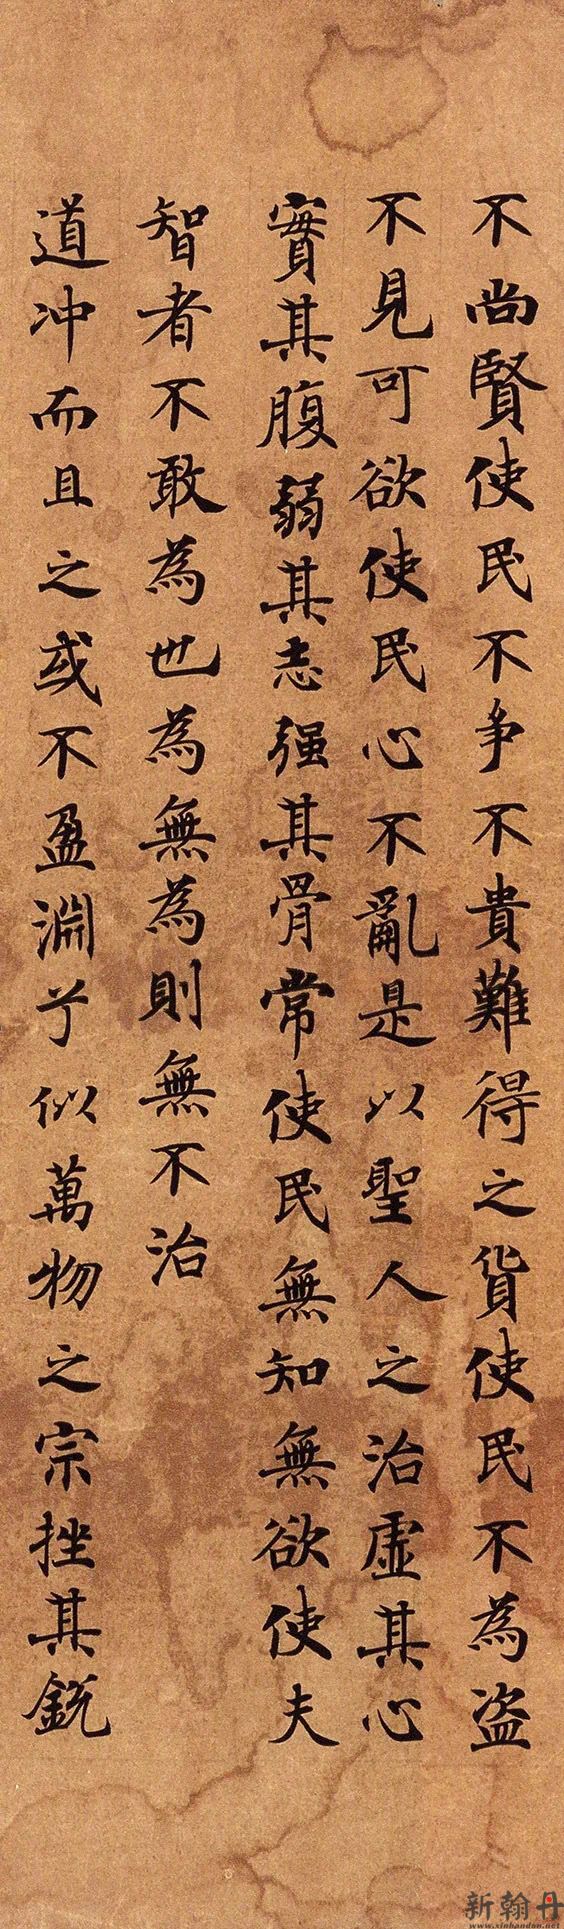 不尚賢使民不争不貴難得之貨使民不為盗
不見可欲使民心不亂是以聖人之治虚其心
實其腹弱其志强其骨常使民無知無欲使夫
智者不敢為也為無為則無不治
道冲而且之或不盈淵兮似萬物之宗挫其銳
新翰丹
www.xinhandan.net